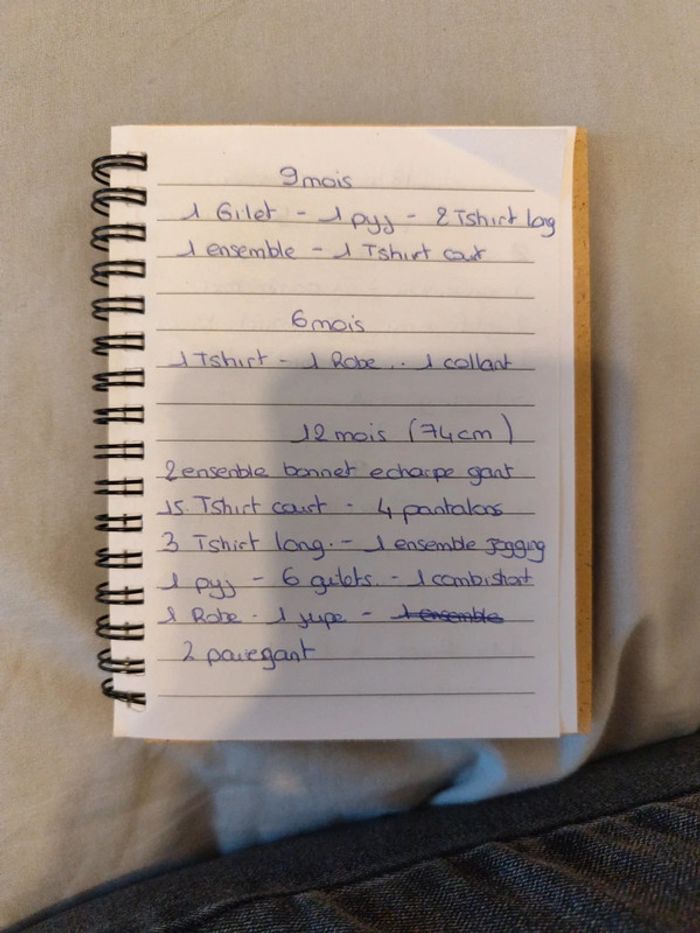 9 mois
1 Gilet - 1 pyj - 2 Tshirt long
1 ensemble - 1 Tshirt court
6 mois
1 Tshirt - 1 Robe - 1 collant
12 mois (74cm)
2 ensemble bonnet echarpe gant
15 Tshirt court - 4 pantalons
3 Tshirt long - 1 ensemble jogging
1 pyj - 6 gilets - 1 combishort
1 Robe - 1 jupe - 1 ensemble
2 paire gant